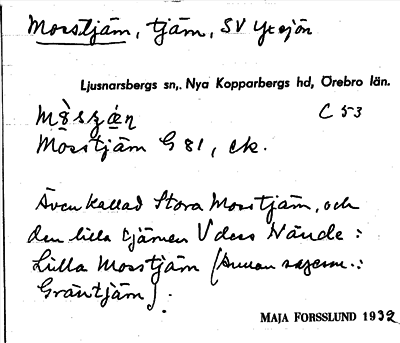 Mosstjärn, tjärn, SV Yxsjön
Ljusnarsbergs sn,. Nya Kopparbergs hd, Örebro län.
C 53
Mosstjärn G 81, ek.
Även kallad Stora Mosstjärn, och
den lilla tjärnen V dess Nände:
Lilla Mosstjärn (Annan sagesm.:
Gräntjärn).
MAJA FORSSLUND 1932